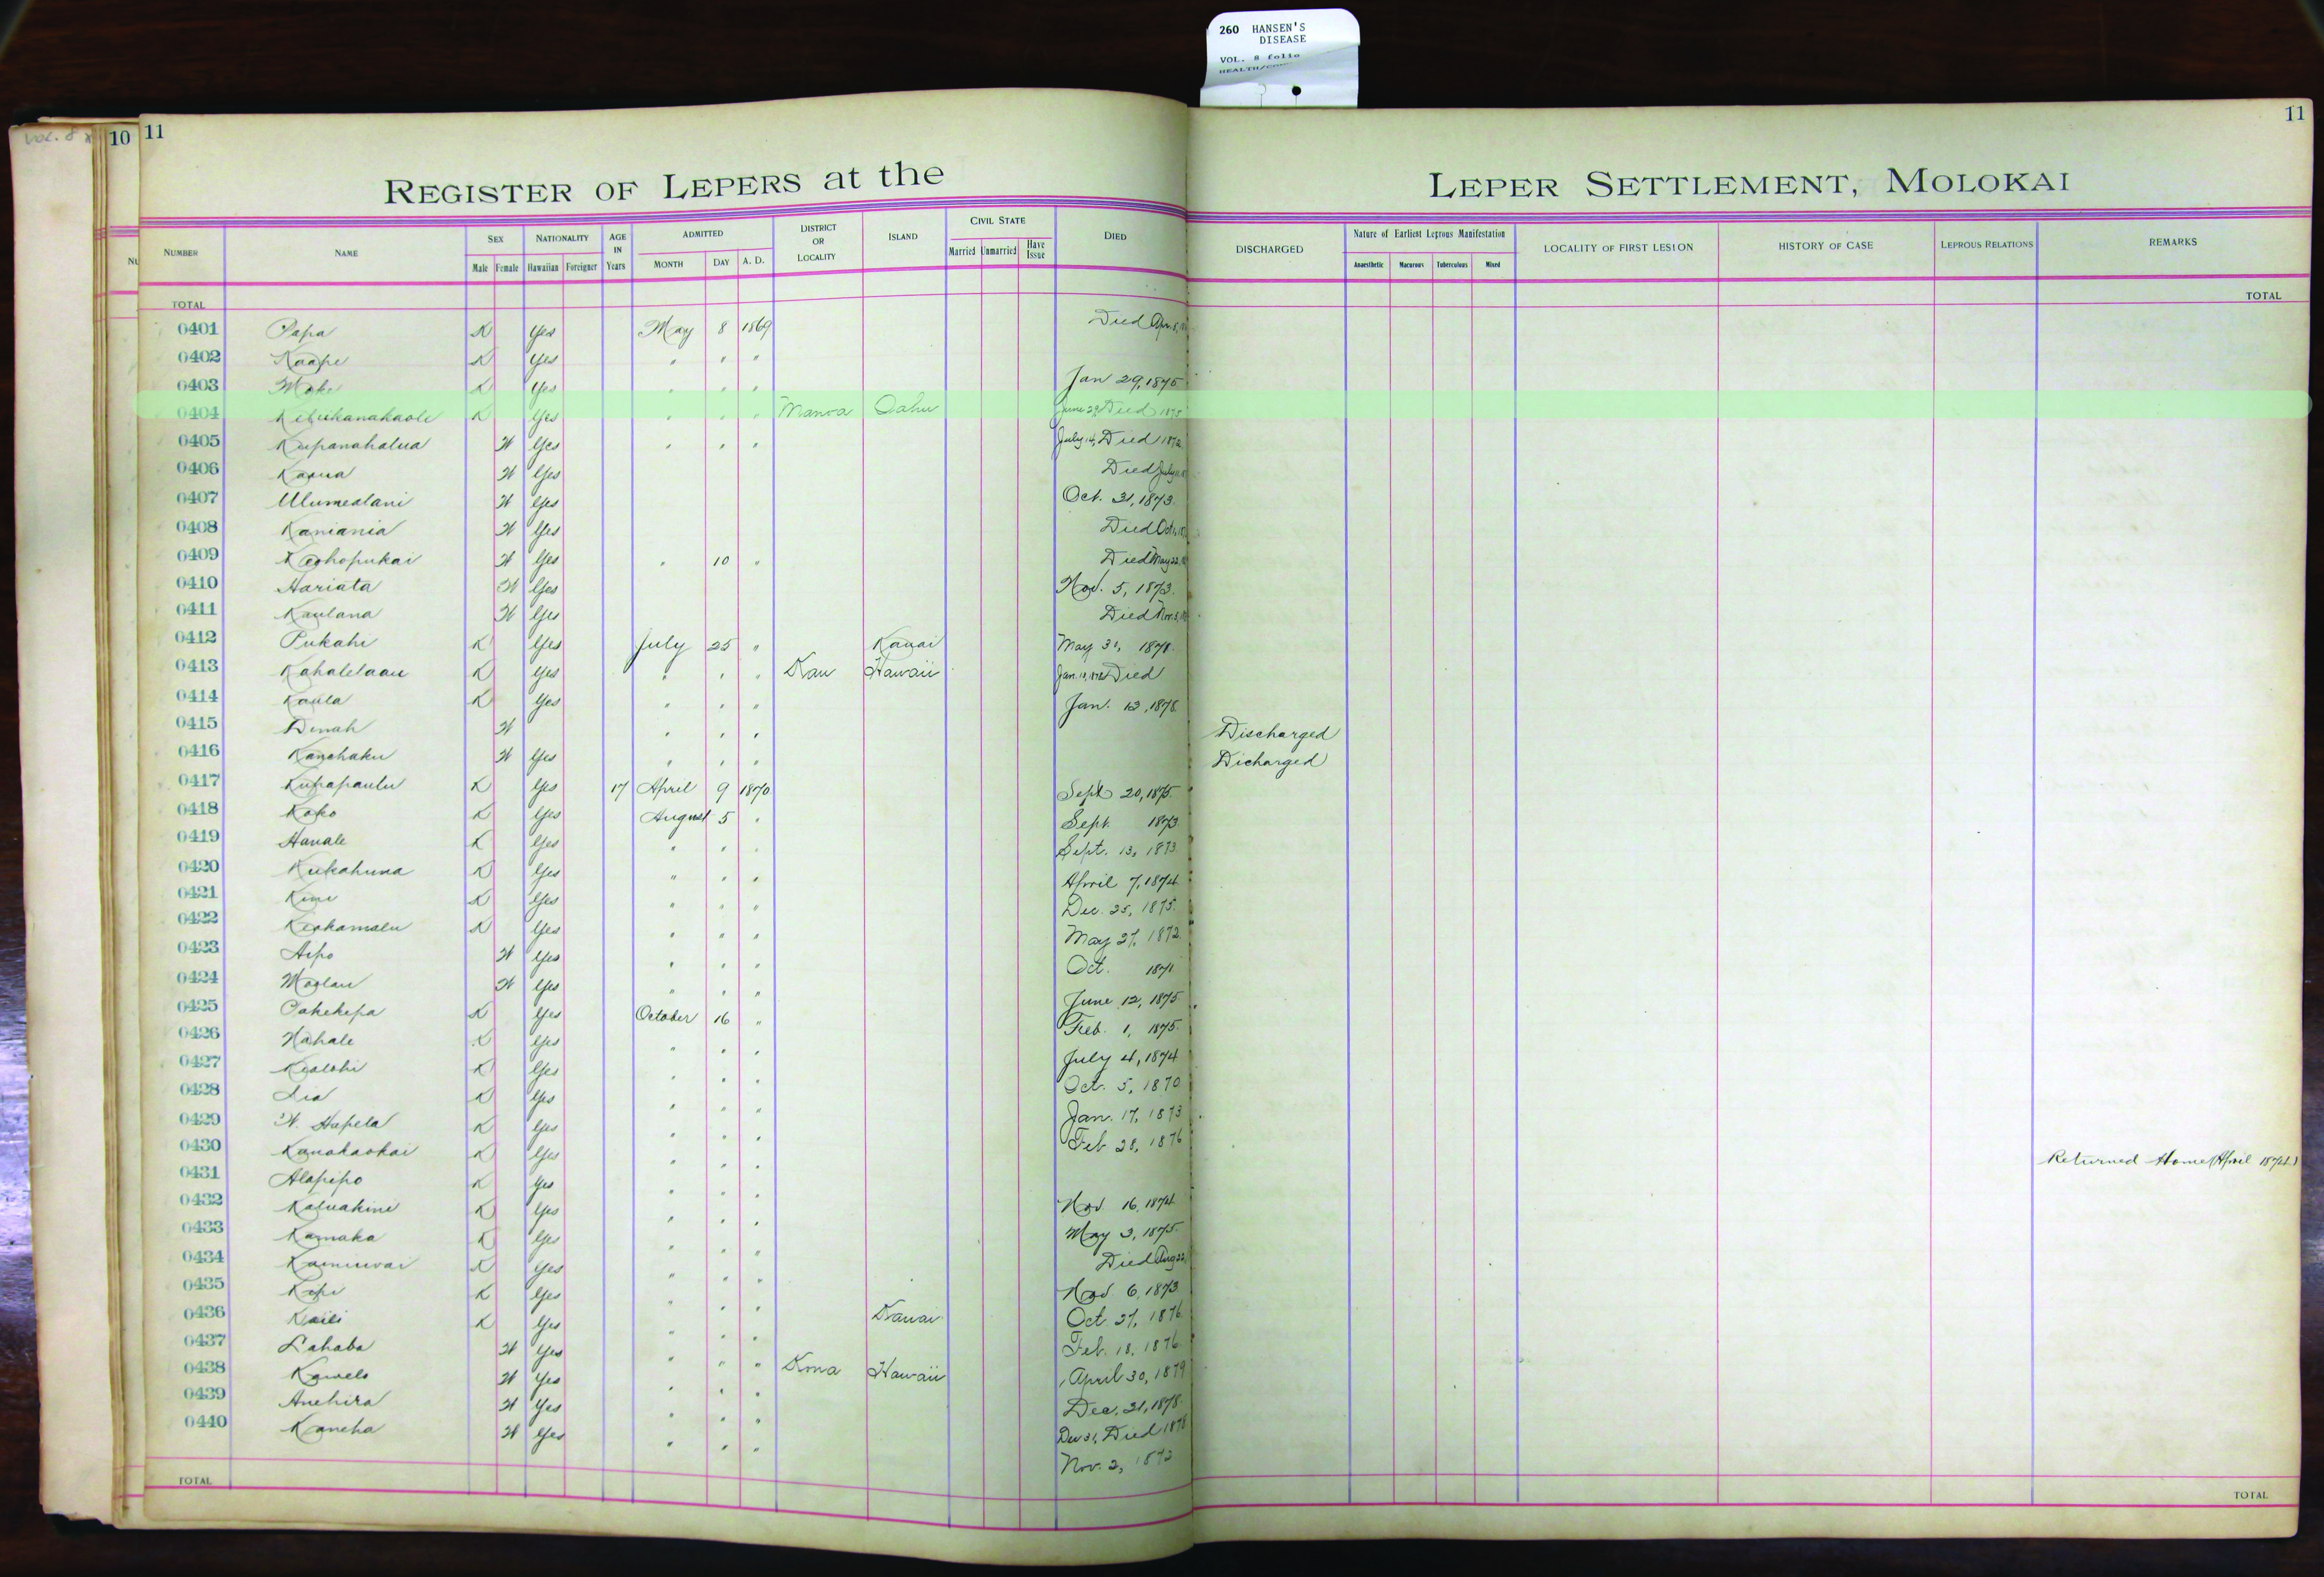 260 HANSEN'S
DISEASE
VOL. 8 folio
VOL. 8
10 11
11
REGISTER OF LEPERS at the LEPER SETTLEMENT, MOLOKAI
NUMBER NAME SEX NATIONALITY AGE IN Years ADMITTED DISTRICT OR LOCALITY ISLAND CIVIL STATE DIED DISCHARGED Nature of Earliest Leprous Manifestation LOCALITY OF FIRST LESION HISTORY OF CASE LEPROUS RELATIONS REMARKS
Male Female Hawaiian Foreigner MONTH DAY A. D. Married Unmarried Have Issue Anaesthetic Macurous Tuberculous Mixed
TOTAL TOTAL
0401 Papa K Yes May 8 1869 Died Apr. 8,
0402 Kaape K Yes " " "
0403 Moke K Yes " " " Jan 29, 1875
0404 Kelukanahaole K Yes " " " Manoa Oahu June 29 Died 1875
0405 Kupanahalua W Yes " " " July 14, Died 1872
0406 Kaaua W Yes Died July
0407 Ulumealani W Yes Oct. 31, 1873.
0408 Kaniania W Yes Died Oct
0409 Keohopukai W Yes " 10 " Died May 22,
0410 Hariata W Yes Nov. 5, 1873.
0411 Kaulana W Yes Died Nov. 3,
0412 Pukahi K Yes July 25 " Kauai May 31, 1871.
0413 Kahalelaau K Yes " " " Kau Hawaii Jan. Died
0414 Kaula K Yes " " " Jan. 12, 1878.
0415 Dinah W " " " Discharged
0416 Kanohaku W Yes " " " Dicharged
0417 Kupapaulu K Yes 17 April 9 1870 Sept 20, 1875.
0418 Koko K Yes August 5 " Sept. 1873
0419 Hanale K Yes " " " Sept. 13, 1873.
0420 Kukahuna K Yes " " " April 7, 1874
0421 Kini K Yes " " " Dec. 25, 1875.
0422 Keohamalu K Yes " " " May 27, 1872.
0423 Aipo W Yes " " " Oct. 1871
0424 Moolau W Yes " " " June 12, 1875
0425 Pakekepa K Yes October 16 " Feb. 1, 1875.
0426 Nahale K Yes " " " July 4, 1874
0427 Kealohi K Yes " " " Oct. 5, 1870
0428 Lia K Yes " " " Jan. 17, 1873
0429 W. Hapela K Yes " " " Feb 28, 1876
0430 Kanakaokai K Yes " " " Returned Home (April 1874.)
0431 Alapipo K Yes " " " Nov. 16, 1874
0432 Kaluakini K Yes " " " May 3, 1875.
0433 Kamaka K Yes " " " Died Aug 22,
0434 Kainiwai K Yes " " " Nov. 6, 1873
0435 Kopi K Yes " " " Oct. 27, 1876
0436 Kaili K Yes " " " Kauai Feb. 18, 1876
0437 Lahaba W Yes " " " April 30, 1879
0438 Kawelo W Yes " " " Kona Hawaii Dec. 31, 1878.
0439 Anehira W Yes " " " Dec 31, Died 1878
0440 Kaneha W Yes " " " Nov. 2, 1872
TOTAL TOTAL